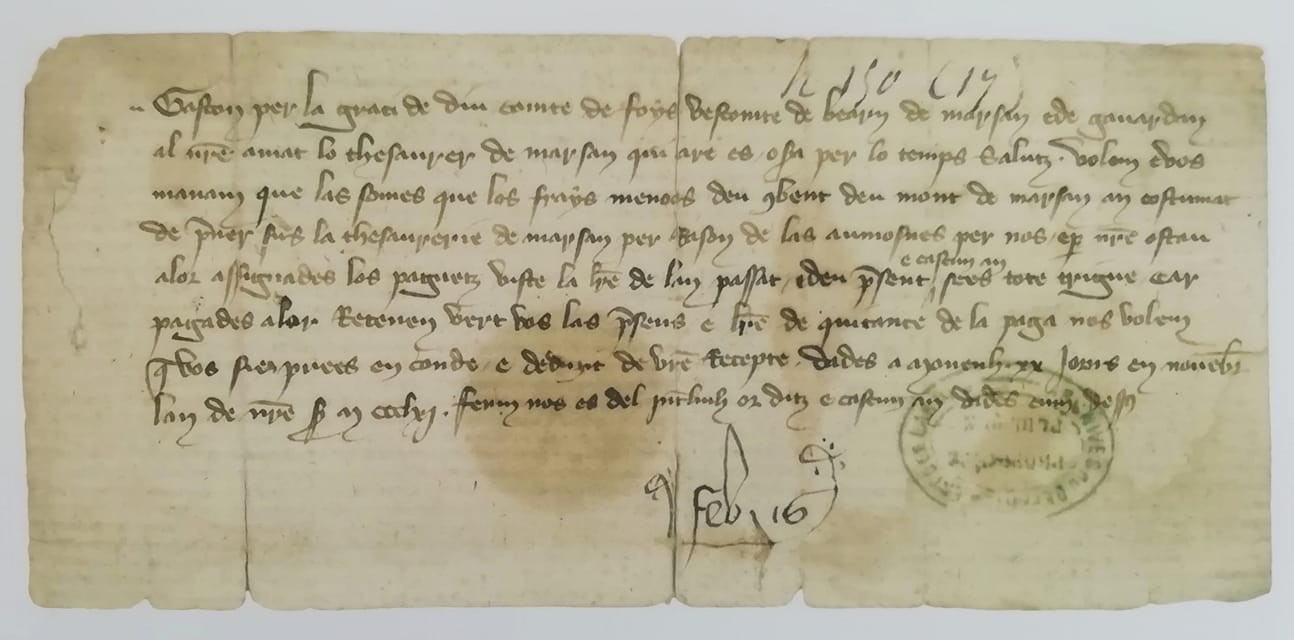 n 150 (17)
Gaston per la graci de diu comte de foys vescomte de bearn de marsan e de gauardan
al nre amat lo thesaurer de marsan qui are es o sa per lo temps Salutz. Volem e vos
manam que las somes que los frays menors deu 9bent deu mont de marsan an costumat
de pner sus la thesaurerie de marsan per Rason de las aumosnes per nos e p nre ostau
e cascun an
alor assignades los paguetz viste la pre de lan passat, e deu psent sees tote trigue car
pagades alor Retenen vert vos las psens e lre de quitance de la paga nos volem
q vos sien prees en conde e deduyt de vre Recepte. Dades a xx Jorns en nouebr
lan de nre S m ccclxj.
Feb 16